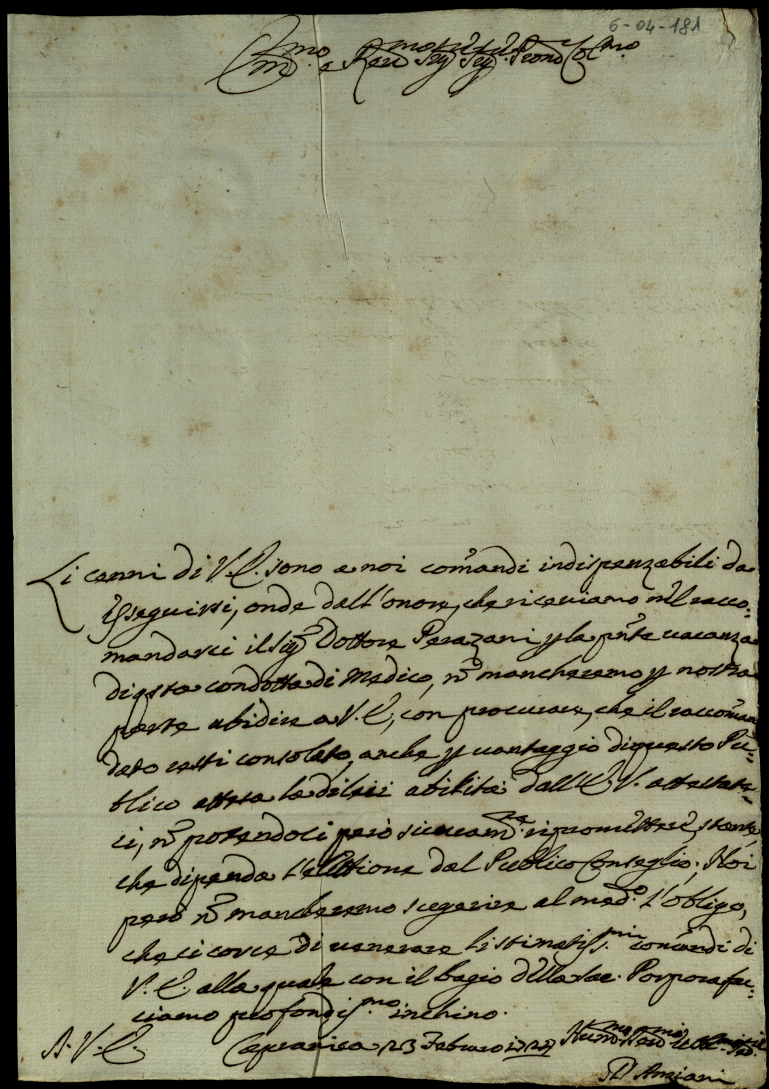 6-04-181
Em.mo e Rev.mo Sig.r Sig.r Pron Col.mo
Li cenni di V.E. sono a noi comandi indispenzabili da
esseguirsi, onde dall'onore, che riceviamo nel racco:
mandarci il Sig.r Dottore Perazani p la pnte vacanza
di qsta condotta di Medico, nō mancheremo p nostra
parte ubidire a V.E., con procurare, che il raccoman
dato resti consolato, anche p vantaggio di questo Pu:
blico attesa la di lui abilità dall'E.V. attestata:
ci, nō potendoci però sicuram.te ripromettere, stante,
che dipenda l'elettione dal Publico Conseglio; Noi
però nō mancheremo sugerire al med.o l'obligo,
che ci corre di venerare li stimatiss.mi comandi di
V.E. alla quale con il bagio della Sac. Porpora fac:
ciamo profondis.mo inchino.
D. V. E. Capranica 23 Febraro 1727
Anziani